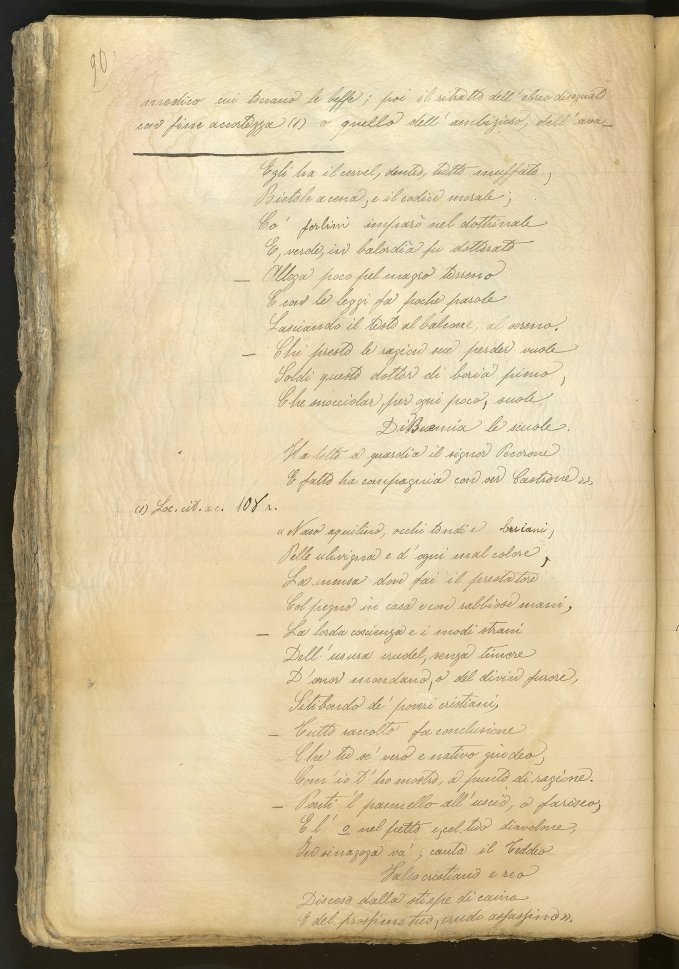 90
medico cui toccano le beffe; poi il ritratto dell'ebreo disegnato
con fine accortezza (1) o quello dell'ambizioso, dell'ava-
Egli ha il cervel, dentro, tutto muffato,
Bietole a cena, e il codice morale;
Co' forbini imparò nel dottrinale
E, verde, in balordia fu dottorato
— Allega poco pel magro terreno
E con le leggi fa poche parole
Lasciando il testo al balcone, al sereno.
— Chi presto le ragion sue perder vuole
Soldi questo dottor di boria pieno,
Che snocciolar, per ogni poco, suole
Di Buemia le scuole.
Ha tolto a guardia il signor Pecorone
E fatto ha compagnia con ser Castrone».
(1) Loc. cit. a c. 108 r.
« Naso aquilino, occhi tondi e
Pelle ulivigna e d'ogni mal colore,
La mensa dove fai il prestatore
Col pegno in casa e con rabbiose mani,
— La lorda coscienza e i modi strani
Dell'usura crudel, senza timore
D'onor mondano, o del divin furore,
Sitibondo de' poveri cristiani,
— Tutto raccolto fa conclusione
Che tu se' vero e nativo giudeo,
Com'io t'ho mostro, a punto di ragione.
— Ponti 'l pannello all'uscio, o fariseo,
E l' o nel petto e, col tuo diavolone,
In sinagoga va'; canta il Teddeo
Falso cristiano e reo
Disceso dalla stirpe di caino
E del prossimo tuo, crudo assassino».